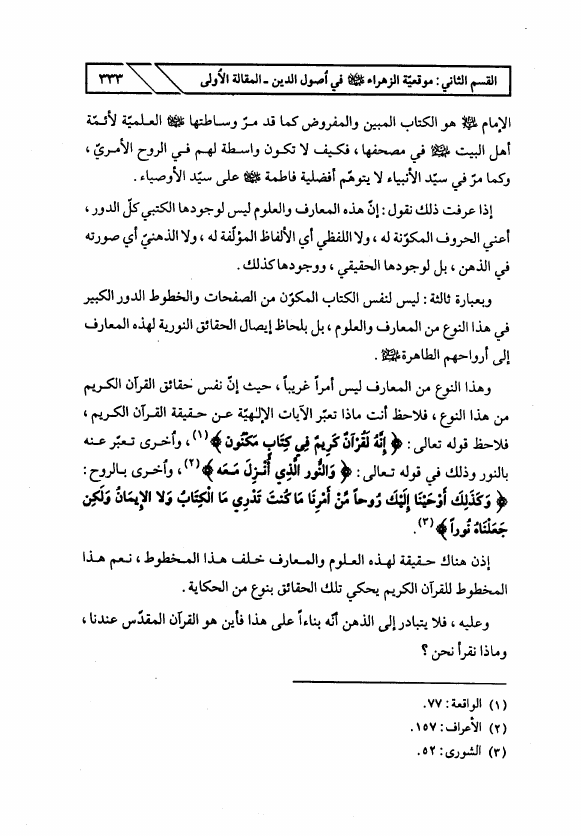 القسم الثاني : موقعيّة الزهراء ﷺ في أصول الدين ـ المقالة الأولى
٣٣٣
الإمام هو الكتاب المبين والمفروض كما قد مرّ وساطتها العلميّة لأئمة
أهل البيت في مصحفها ، فكيف لا تكون واسطة لهم في الروح الأمريّ ،
وكما مرّ في سيّد الأنبياء لا يتوهّم أفضلية فاطمة على سيّد الأوصياء .
إذا عرفت ذلك نقول : إنّ هذه المعارف والعلوم ليس لوجودها الكتبي كلّ الدور ،
أعني الحروف المكوّنة له ، ولا اللفظي أي الألفاظ المؤلّفة له ، ولا الذهنيّ أي صورته
في الذهن ، بل لوجودها الحقيقي ، ووجودها كذلك .
وبعبارة ثالثة : ليس لنفس الكتاب المكوّن من الصفحات والخطوط الدور الكبير
في هذا النوع من المعارف والعلوم ، بل بلحاظ إيصال الحقائق النورية لهذه المعارف
إلى أرواحهم الطاهرة .
وهذا النوع من المعارف ليس أمراً غريباً ، حيث إنّ نفس حقائق القرآن الكريم
من هذا النوع ، فلاحظ أنت ماذا تعبّر الآيات الإلهيّة عن حقيقة القرآن الكريم ،
فلاحظ قوله تعالى : ﴿ إِنَّهُ لَقُرْآنٌ كَرِيمٌ فِي كِتَابٍ مَكْنُون ﴾ (١) ، وأخرى تعبّر عنه
بالنور وذلك في قوله تعالى : ﴿ وَالنُّورَ الَّذِي أُنْزِلَ مَعَهُ ﴾ (٢) ، وأخرى بالروح :
﴿ وَكَذَلِكَ أَوْحَيْنَا إِلَيْكَ رُوحاً مِّنْ أَمْرِنَا مَا كُنتَ تَدْرِي مَا الْكِتَابُ وَلا الإِيمَانُ وَلَكِن
جَعَلْنَاهُ نُوراً ﴾ (٣) .
إذن هناك حقيقة لهذه العلوم والمعارف خلف هذا المخطوط ، نعم هذا
المخطوط للقرآن الكريم يحكي تلك الحقائق بنوع من الحكاية .
وعليه ، فلا يتبادر إلى الذهن أنّه بناءاً على هذا فأين هو القرآن المقدّس عندنا ،
وماذا نقرأ نحن ؟
(١) الواقعة : ٧٧.
(٢) الأعراف : ١٥٧.
(٣) الشورى : ٥٢.